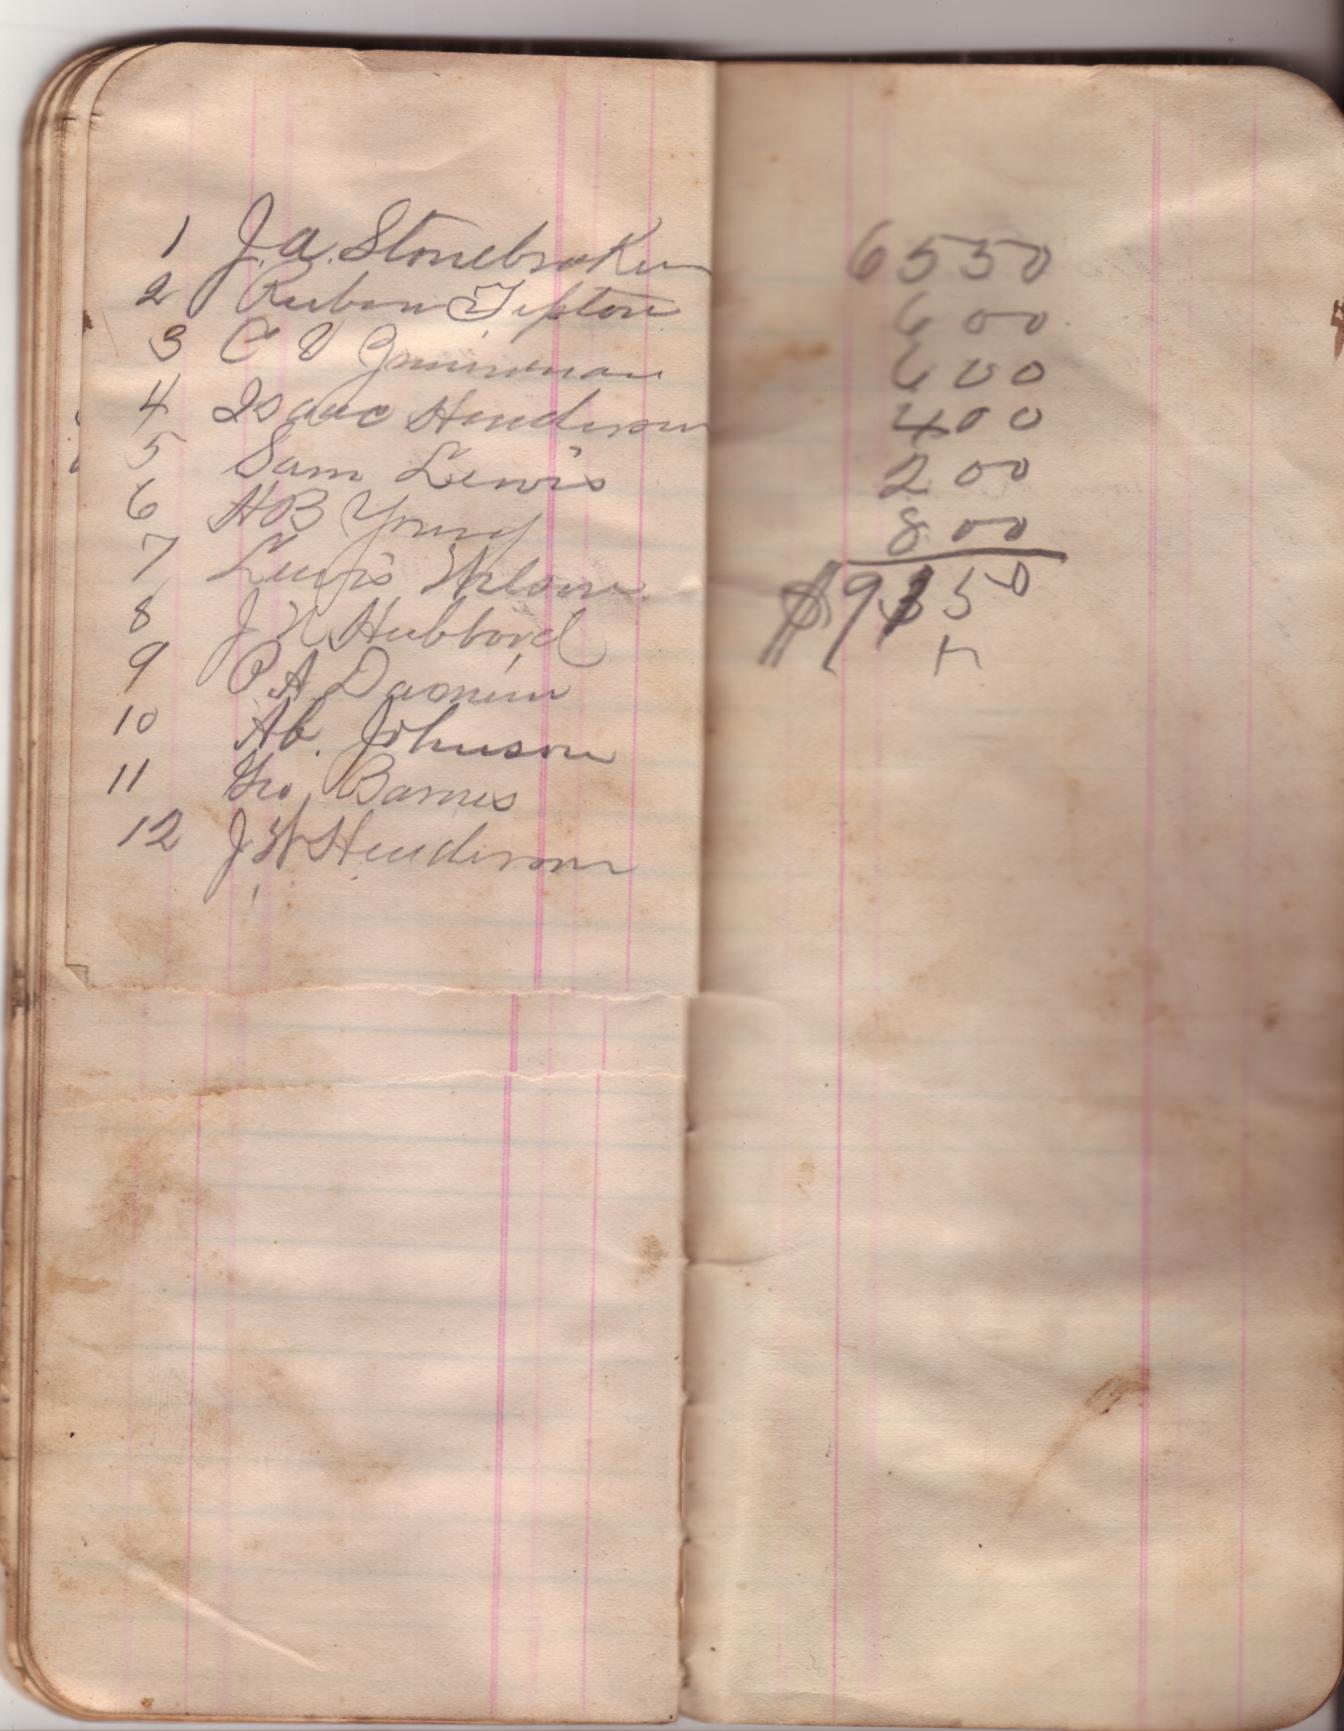 1 J. A. Stonebraker
2 Ruben Tipton
3 C V
4 Isaac Henderson
5 Sam Lewis
6 H B Young
7 Lewis
8 J N Hubbard
9 P A
10 Ab. Johnson
11 Geo. Barnes
12 J W Henderson
6550
600
600
400
200
800
$9150